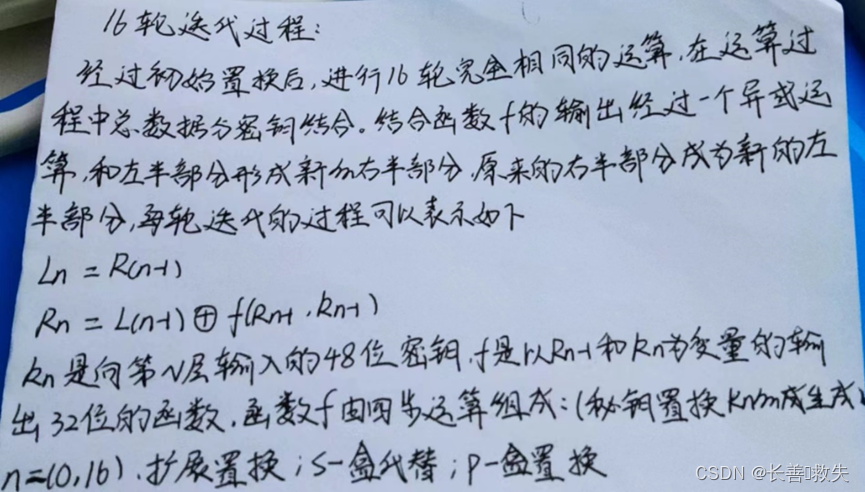 16轮迭代过程:
经过初始置换后,进行16轮完全相同的运算,在运算过
程中总数据与密钥结合。结合函数f的输出经过一个异或运
算,和左半部分形成新的右半部分,原来的右半部分成为新的左
半部分,每轮迭代的过程可以表示如下
Ln = R(n-1)
Rn = L(n-1)⊕f(Rn-1,kn-1)
kn是向第N层输入的48位密钥,f是以Rn-1和Kn为变量的输
出32位的函数,函数f由四步运算组成:(秘钥置换Kn的生成
n=(0,16),扩展置换;S-盒代替;P-盒置换
CSDN @长善救失